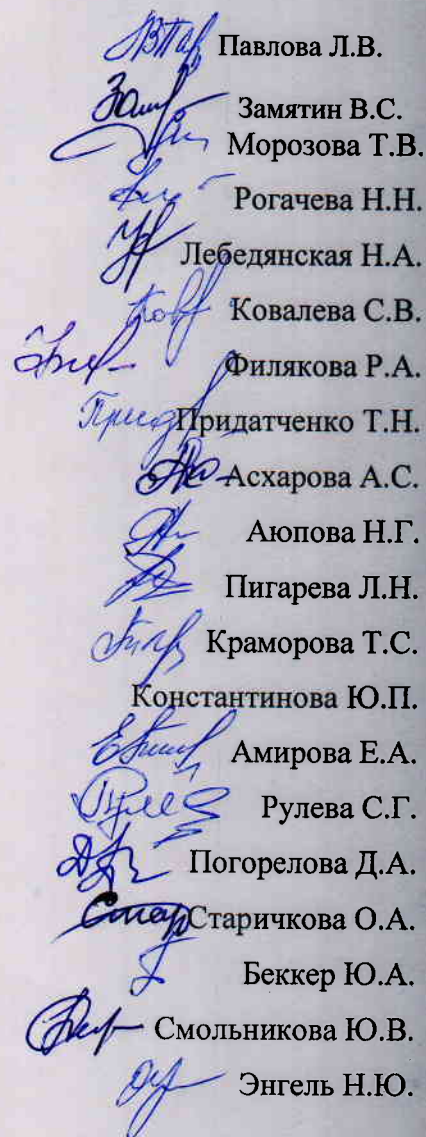 Павлова Л.В.
Замятин В.С.
Морозова Т.В.
Рогачева Н.Н.
Лебедянская Н.А.
Ковалева С.В.
Филякова Р.А.
Придатченко Т.Н.
Асхарова А.С.
Аюпова Н.Г.
Пигарева Л.Н.
Краморова Т.С.
Константинова Ю.П.
Амирова Е.А.
Рулева С.Г.
Погорелова Д.А.
Старичкова О.А.
Беккер Ю.А.
Смольникова Ю.В.
Энгель Н.Ю.